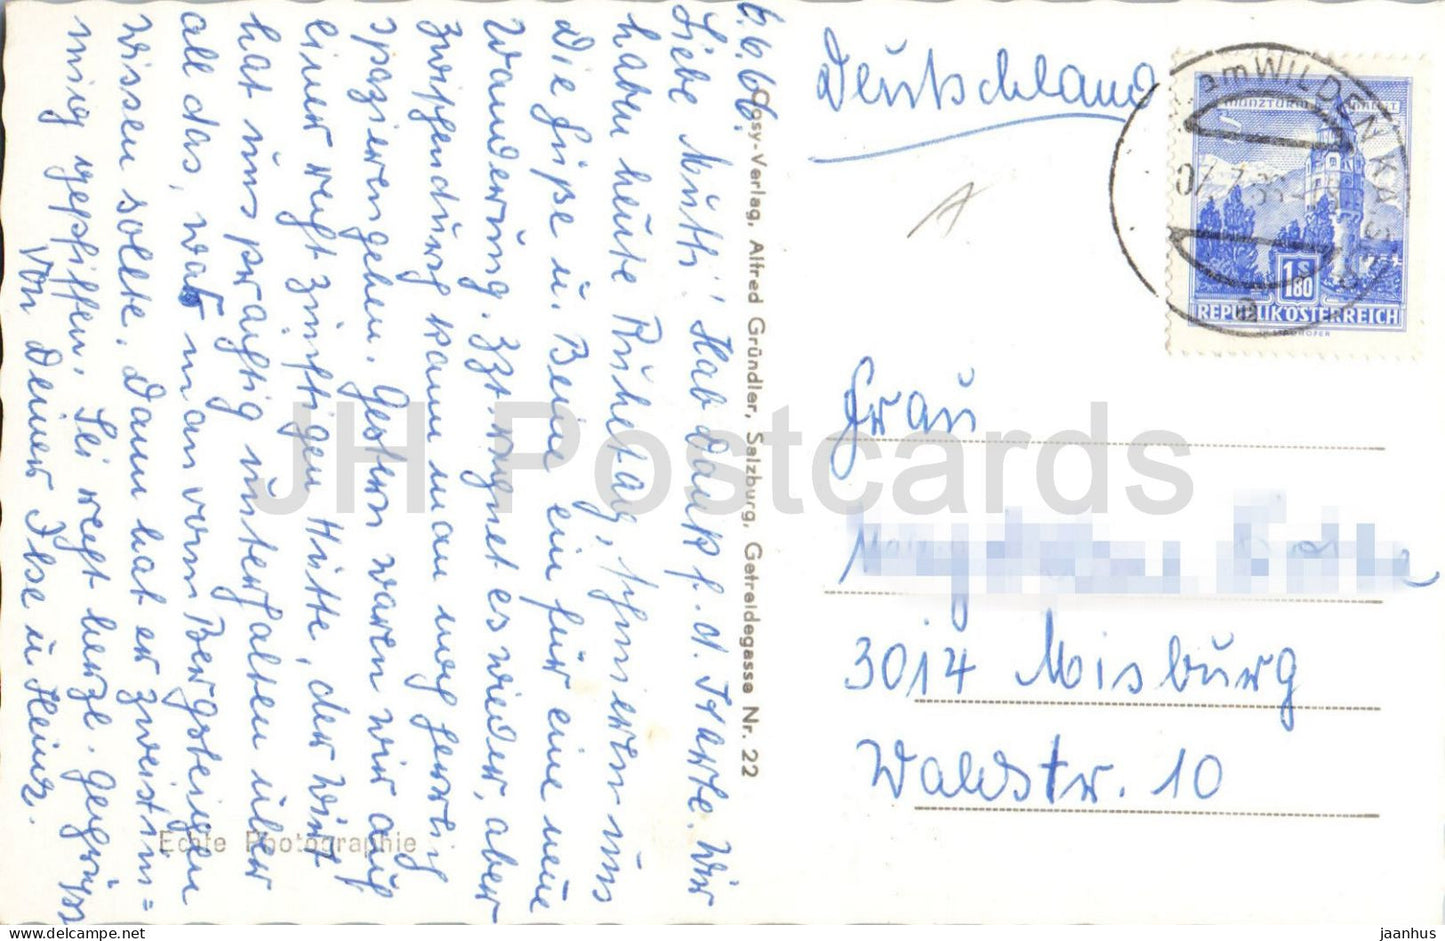 6.6.66.
Liebe Mutti! Hab Dank f. d. Karte. Wir
haben heute Ruhetag, schmieren uns
die Füße u. Beine ein für eine neue
Wanderung. Zzt. regnet es wieder, aber
zwischendurch kann man noch herrlich
spazierengehen. Gestern waren wir auf
einer recht zünftigen Hütte, der Wirt
hat uns prächtig unterhalten über
all das, was man vom Bergsteigen
wissen sollte. Dann hat er zweistim=
mig gepfiffen. Sei recht herzl. gegrüßt
von Deiner Ilse u. Heinz.
Echte Photographie
Cosy-Verlag, Alfred Gründler, Salzburg, Getreidegasse Nr. 22
Deutschland
am WILDEN KAISER
MÜNZTURM
1 S 80
REPUBLIK ÖSTERREICH
Frau
3014 Misburg
Waldstr. 10
JH Postcards
jaanhus